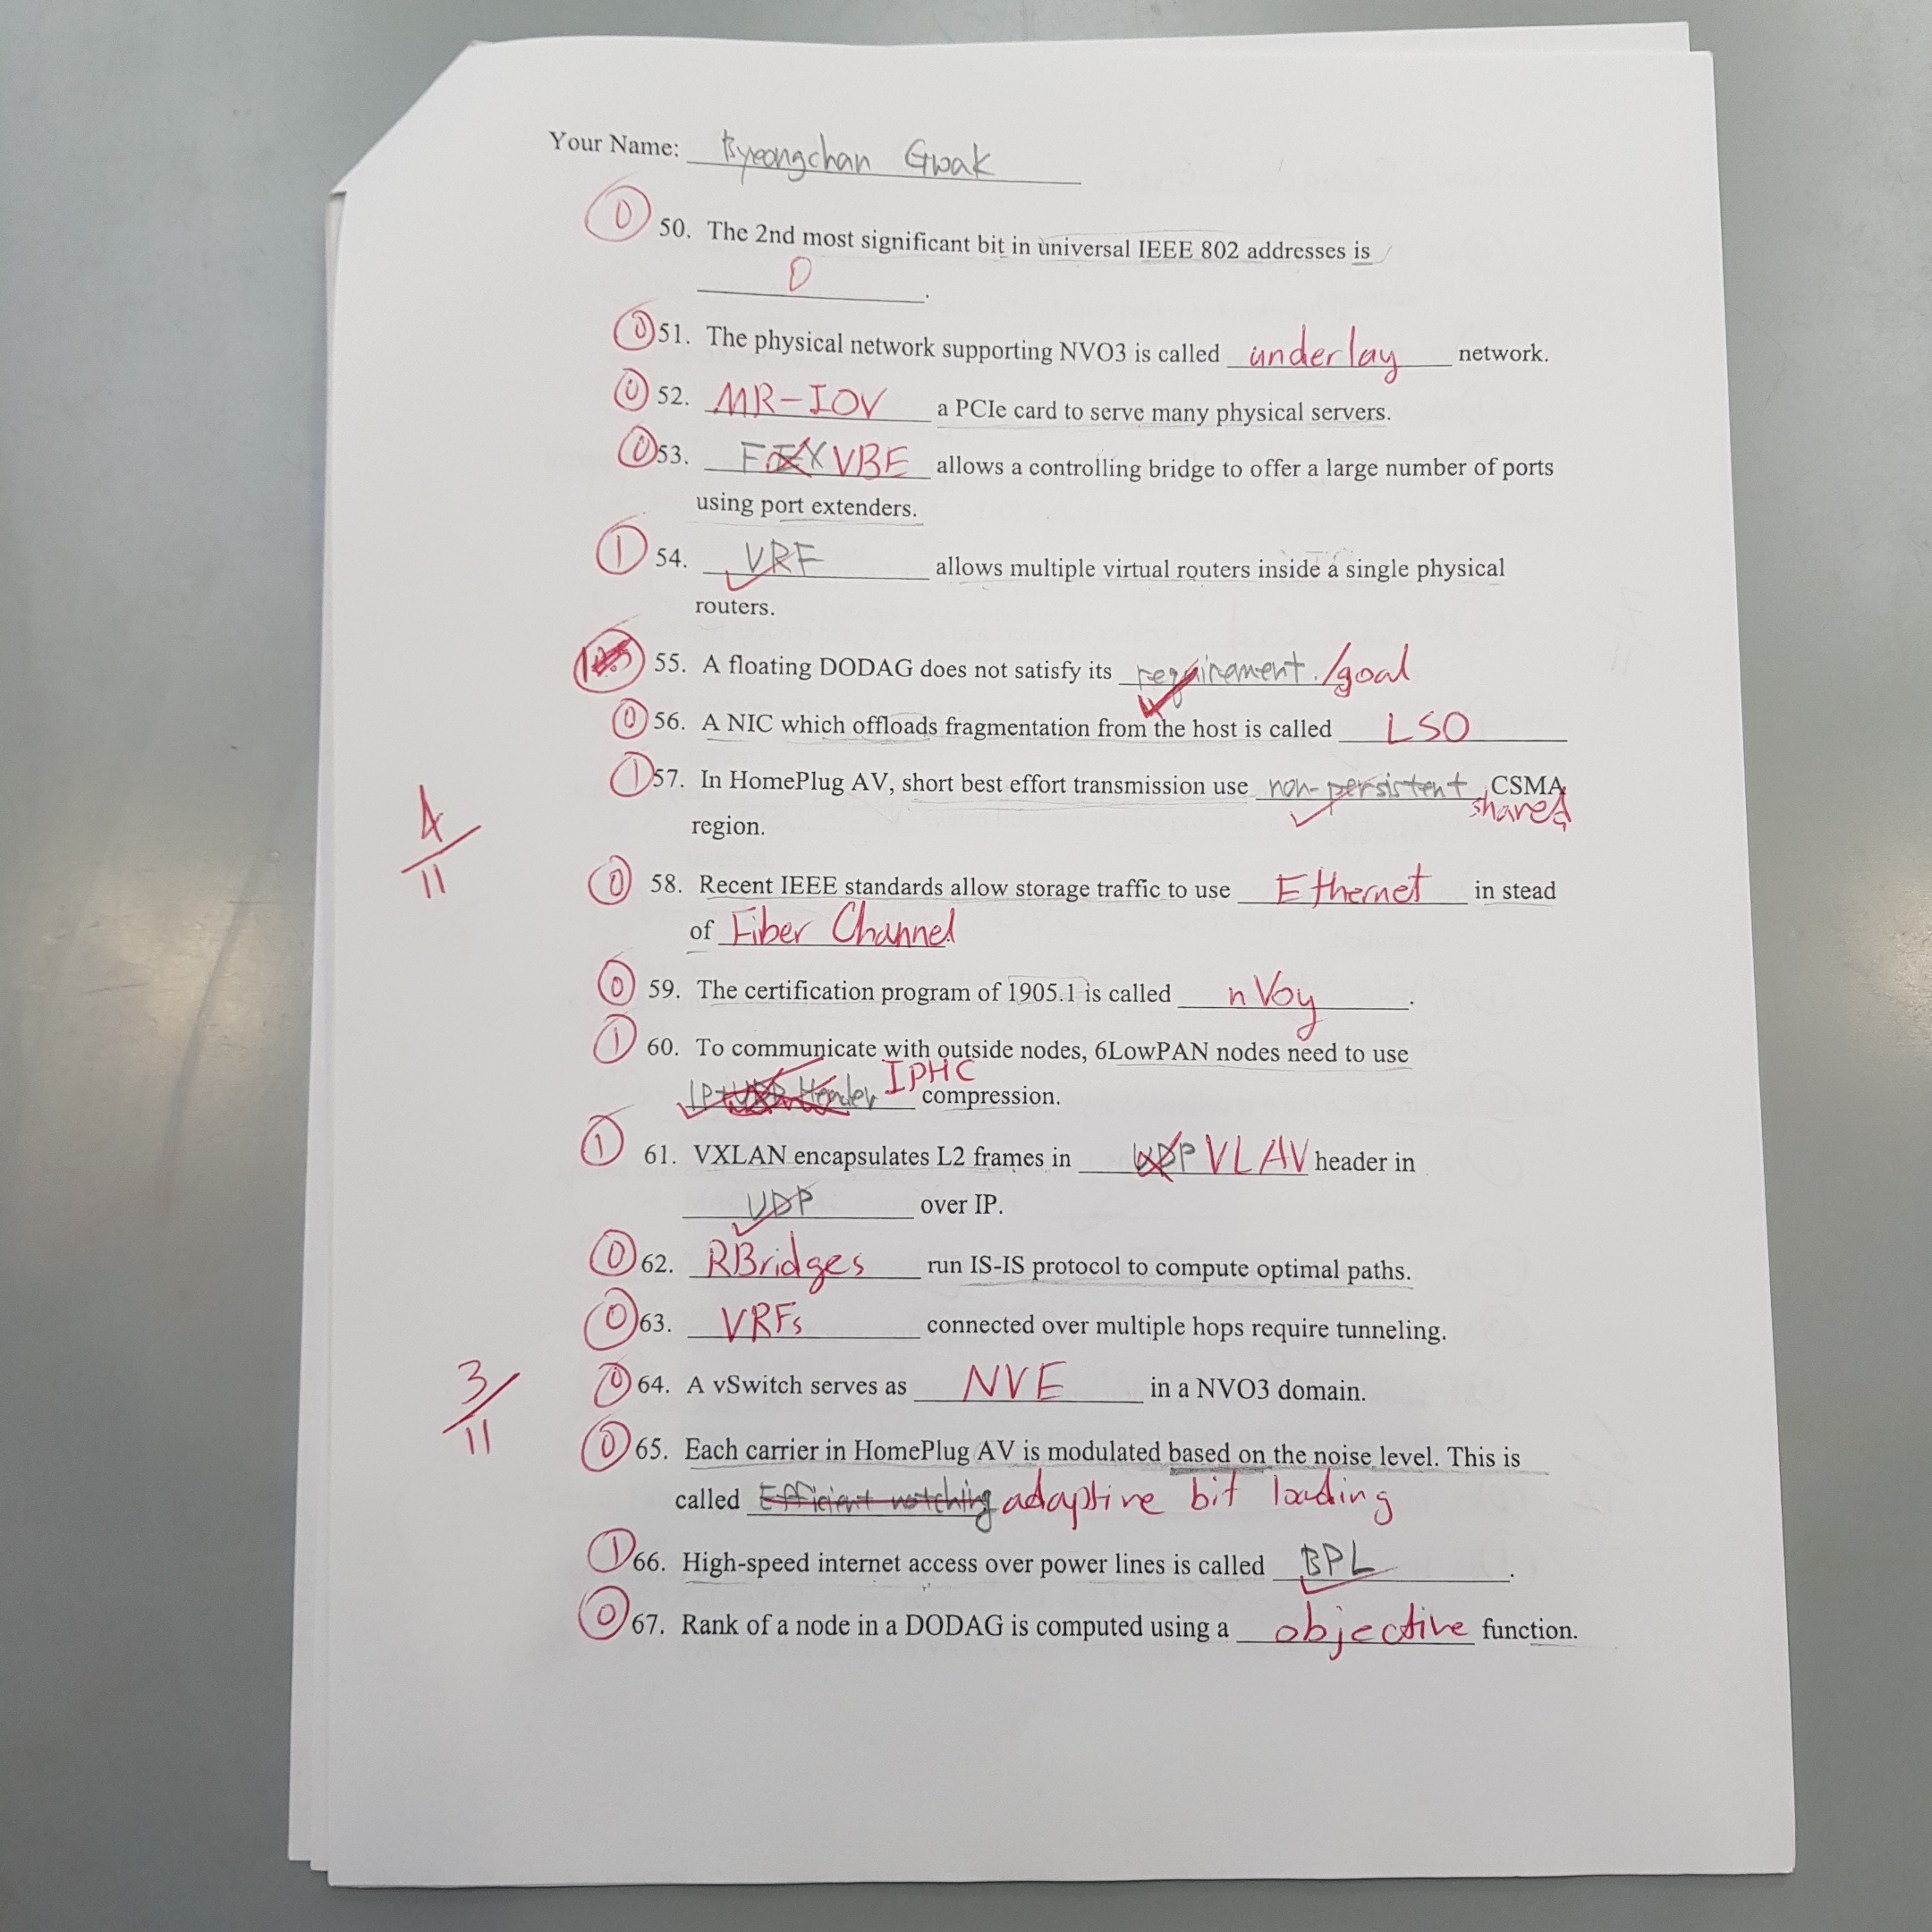 Your Name: Byeongchan Gwak
0 50. The 2nd most significant bit in universal IEEE 802 addresses is
0 .
0 51. The physical network supporting NVO3 is called underlay network.
0 52. MR-IOV a PCIe card to serve many physical servers.
0 53. FEX VBE allows a controlling bridge to offer a large number of ports
using port extenders.
1 54. VRF allows multiple virtual routers inside a single physical
routers.
1 55. A floating DODAG does not satisfy its requirement. /goal
0 56. A NIC which offloads fragmentation from the host is called LSO
1 57. In HomePlug AV, short best effort transmission use non-persistent, CSMA
shared
region.
4/11
0 58. Recent IEEE standards allow storage traffic to use Ethernet in stead
of Fiber Channel
0 59. The certification program of 1905.1 is called nVoy .
1 60. To communicate with outside nodes, 6LowPAN nodes need to use
IP+UDP Header IPHC compression.
1 61. VXLAN encapsulates L2 frames in UDP VLAN header in
UDP over IP.
0 62. RBridges run IS-IS protocol to compute optimal paths.
0 63. VRFs connected over multiple hops require tunneling.
3/11
0 64. A vSwitch serves as NVE in a NVO3 domain.
0 65. Each carrier in HomePlug AV is modulated based on the noise level. This is
called Efficient notching adaptive bit loading
1 66. High-speed internet access over power lines is called BPL .
0 67. Rank of a node in a DODAG is computed using a objective function.